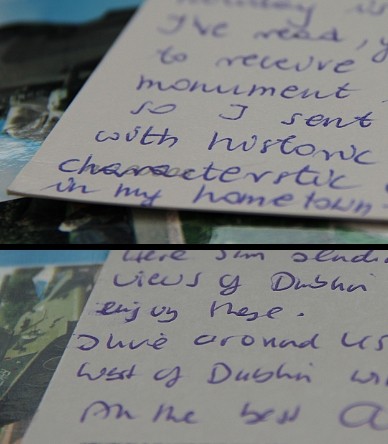 I've read, y
to receive
monument
so I sent
with historic
characterstic
in my hometown
Here I'm sendi
views of Dublin
enjoy these.
I live around
West of Dublin wi
All the best